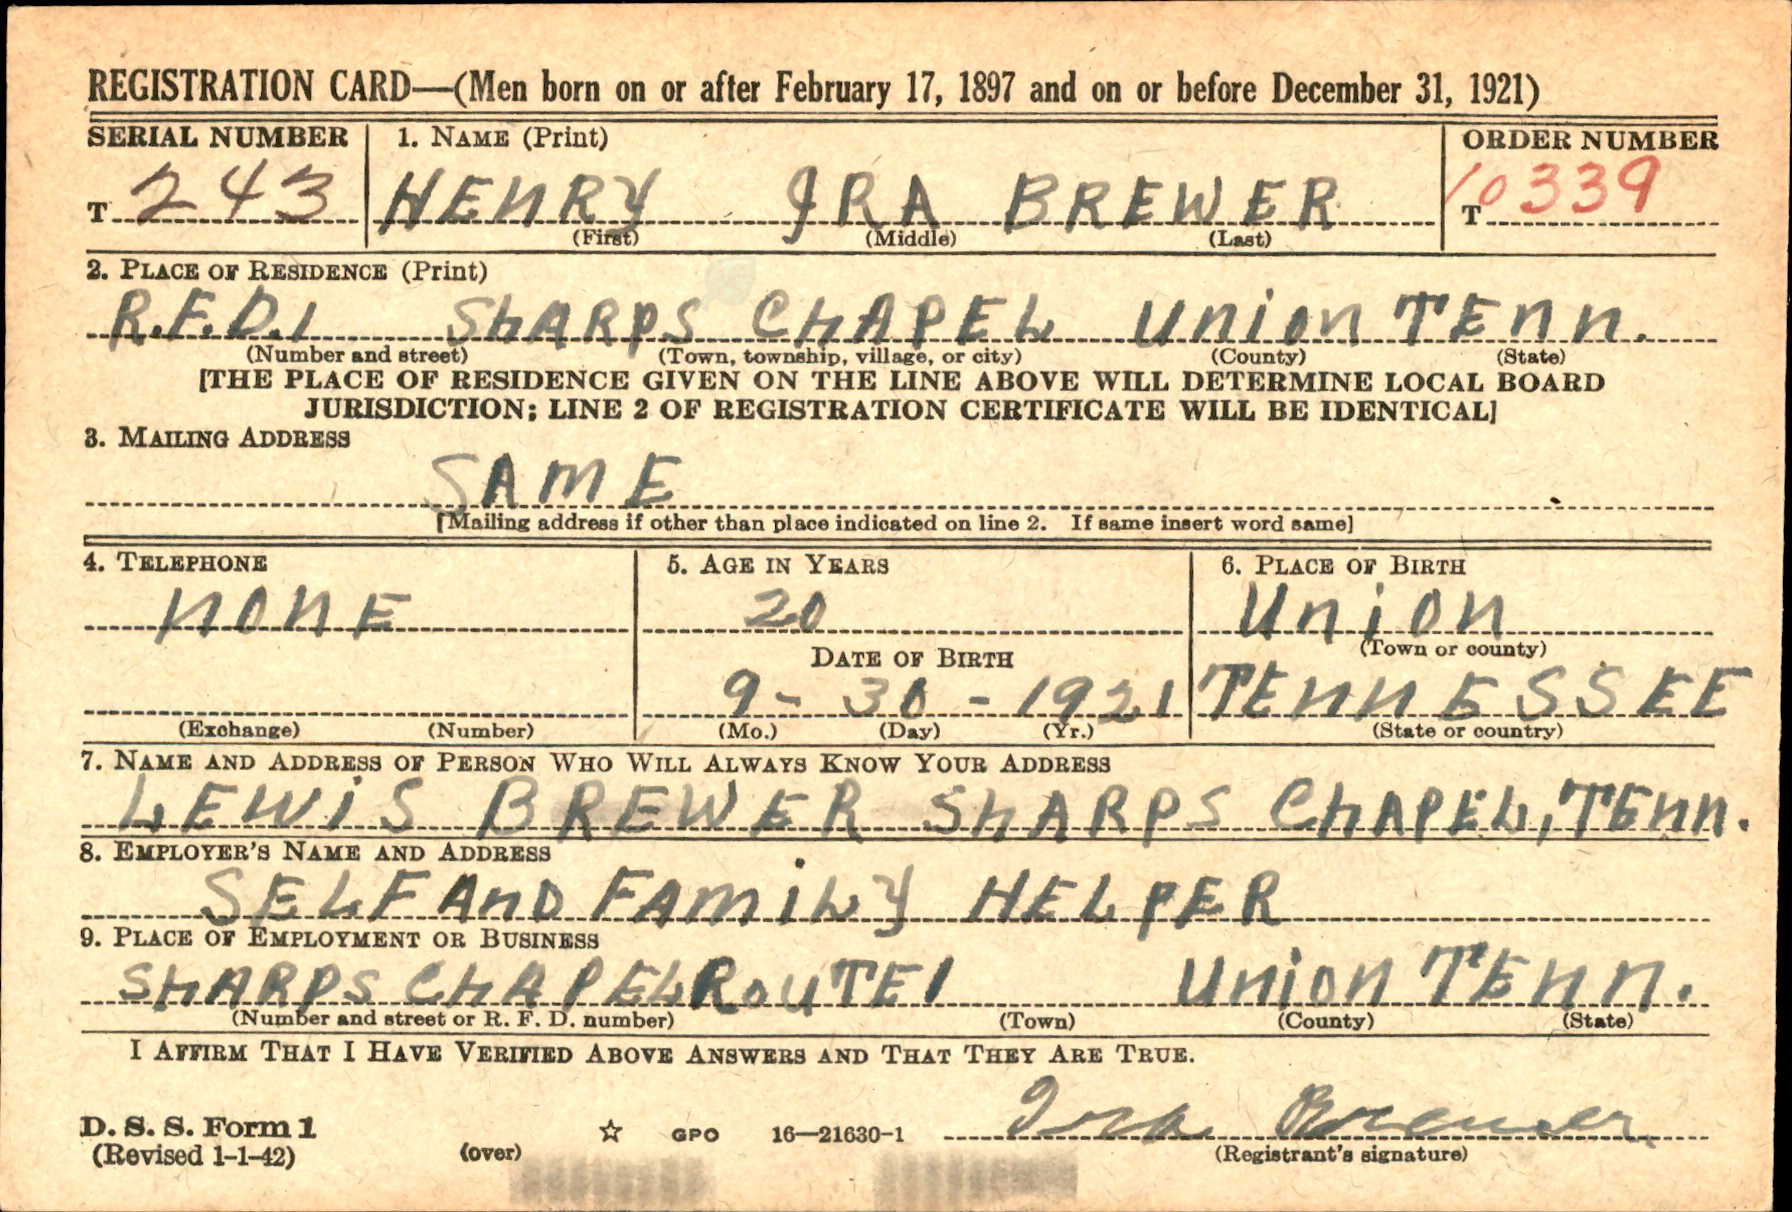 REGISTRATION CARD—(Men born on or after February 17, 1897 and on or before December 31, 1921)
SERIAL NUMBER 1. NAME (Print) ORDER NUMBER
T 243 HENRY IRA BREWER T 10339
(First) (Middle) (Last)
2. PLACE OF RESIDENCE (Print)
R.F.D.1 SHARPS CHAPEL UNION TENN.
(Number and street) (Town, township, village, or city) (County) (State)
[THE PLACE OF RESIDENCE GIVEN ON THE LINE ABOVE WILL DETERMINE LOCAL BOARD
JURISDICTION; LINE 2 OF REGISTRATION CERTIFICATE WILL BE IDENTICAL]
3. MAILING ADDRESS
SAME
[Mailing address if other than place indicated on line 2. If same insert word same]
4. TELEPHONE 5. AGE IN YEARS 6. PLACE OF BIRTH
NONE 20 UNION
DATE OF BIRTH (Town or county)
9-30-1921 TENNESSEE
(Exchange) (Number) (Mo.) (Day) (Yr.) (State or country)
7. NAME AND ADDRESS OF PERSON WHO WILL ALWAYS KNOW YOUR ADDRESS
LEWIS BREWER SHARPS CHAPEL, TENN.
8. EMPLOYER'S NAME AND ADDRESS
SELF AND FAMILY HELPER
9. PLACE OF EMPLOYMENT OR BUSINESS
SHARPS CHAPEL ROUTE 1 UNION TENN.
(Number and street or R. F. D. number) (Town) (County) (State)
I AFFIRM THAT I HAVE VERIFIED ABOVE ANSWERS AND THAT THEY ARE TRUE.
Ira Brewer
D. S. S. Form 1
(Revised 1-1-42) (over) ☆ GPO 16—21630-1 (Registrant's signature)